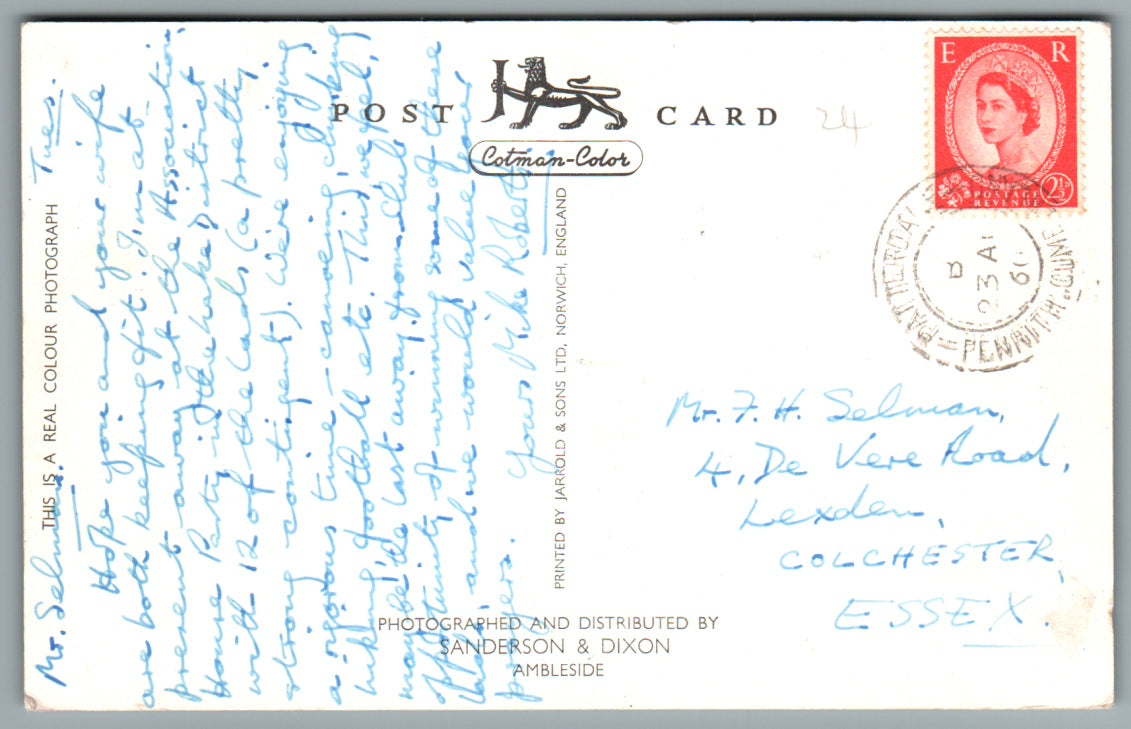 POST CARD
Cotman-Color
24
E R
POSTAGE
REVENUE
2½D
PENRITH
B
23 A
60
THIS IS A REAL COLOUR PHOTOGRAPH
PRINTED BY JARROLD & SONS LTD, NORWICH, ENGLAND
PHOTOGRAPHED AND DISTRIBUTED BY
SANDERSON & DIXON
AMBLESIDE
Tues.
Mr. Selman.
Hope you and your wife
are both keeping fit. I'm at
present away at the Association
House Party in the Lake District
with 12 of the lads (a pretty
strong contingent). We're enjoying
a vigorous time – canoeing, climbing
hiking, football etc. This, we feel,
maybe the last away from Club
opportunity of winning some of these
lads and we would value your
prayers. Yours Mike Roberts.
Mr. F. H. Selman,
4, De Vere Road,
Lexden,
COLCHESTER,
ESSEX.